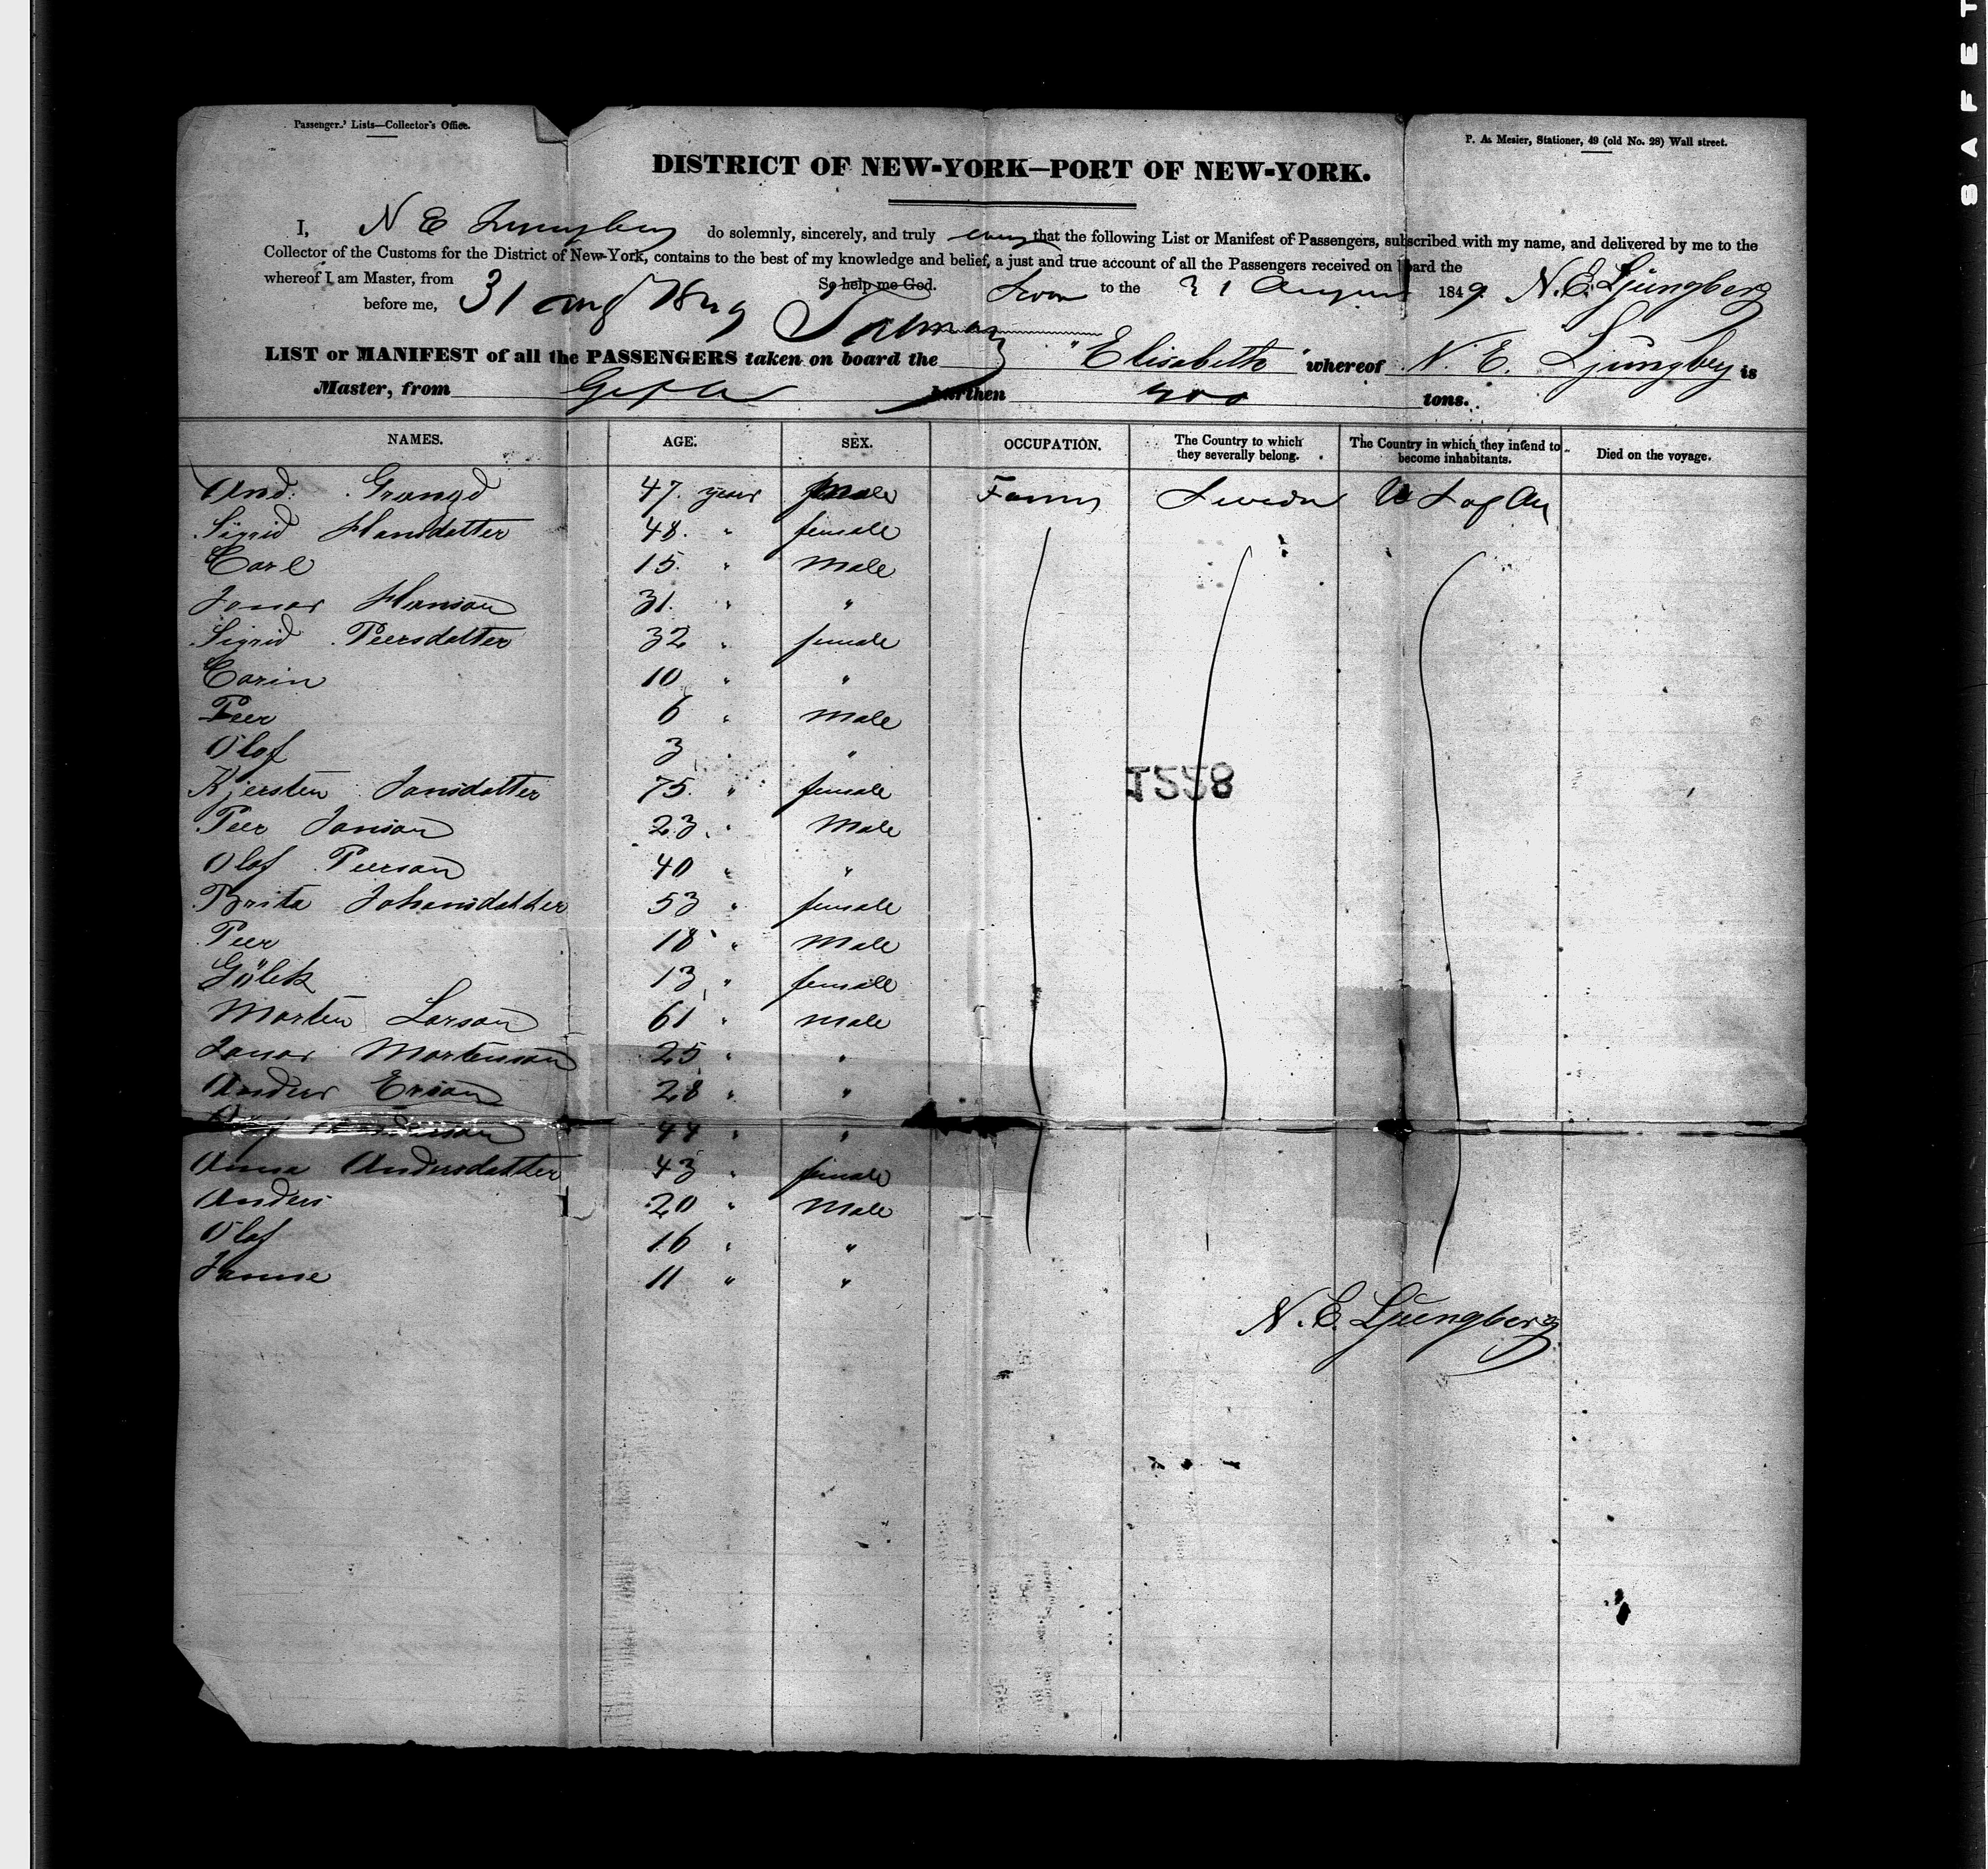 SAFET
Passenger.' Lists—Collector's Office.
P. A. Mesier, Stationer, 49 (old No. 28) Wall street.
DISTRICT OF NEW-YORK—PORT OF NEW-YORK.
I, N E do solemnly, sincerely, and truly that the following List or Manifest of Passengers, subscribed with my name, and delivered by me to the
Collector of the Customs for the District of New-York, contains to the best of my knowledge and belief, a just and true account of all the Passengers received on board the
whereof I am Master, from So help me God. to the 31 August 1849. N. E. Ljungberg
before me, 31 aug 1849
LIST or MANIFEST of all the PASSENGERS taken on board the "Elisabeth" whereof N. E. Ljungberg is
Master, from Gefle burthen tons.
NAMES. AGE. SEX. OCCUPATION. The Country to which they severally belong. The Country in which they intend to become inhabitants. Died on the voyage.
And. 47. years male Farmer Sweden U S of Am
Sigrid Hansdatter 48. " female
Carl 15. " Male
Jonas Hanson 31. " "
Sigrid Peersdatter 32 " female
Carin 10 " "
Peer 6 " Male
Olof 3 " "
Kjersten Jansdatter 75. " female
Peer Janson 23. " Male
Olof Peerson 40 " "
Brita Johansdatter 53 " female
Peer 18 " Male
13 " female
Morten Larson 61 " male
Jonas Mortenson 25 " "
Anders Erson 28 " "
44 " "
Anna Andersdatter 43 " female
Anders 20 " Male
Olof 16 " "
11 " "
1558
N. E. Ljungberg